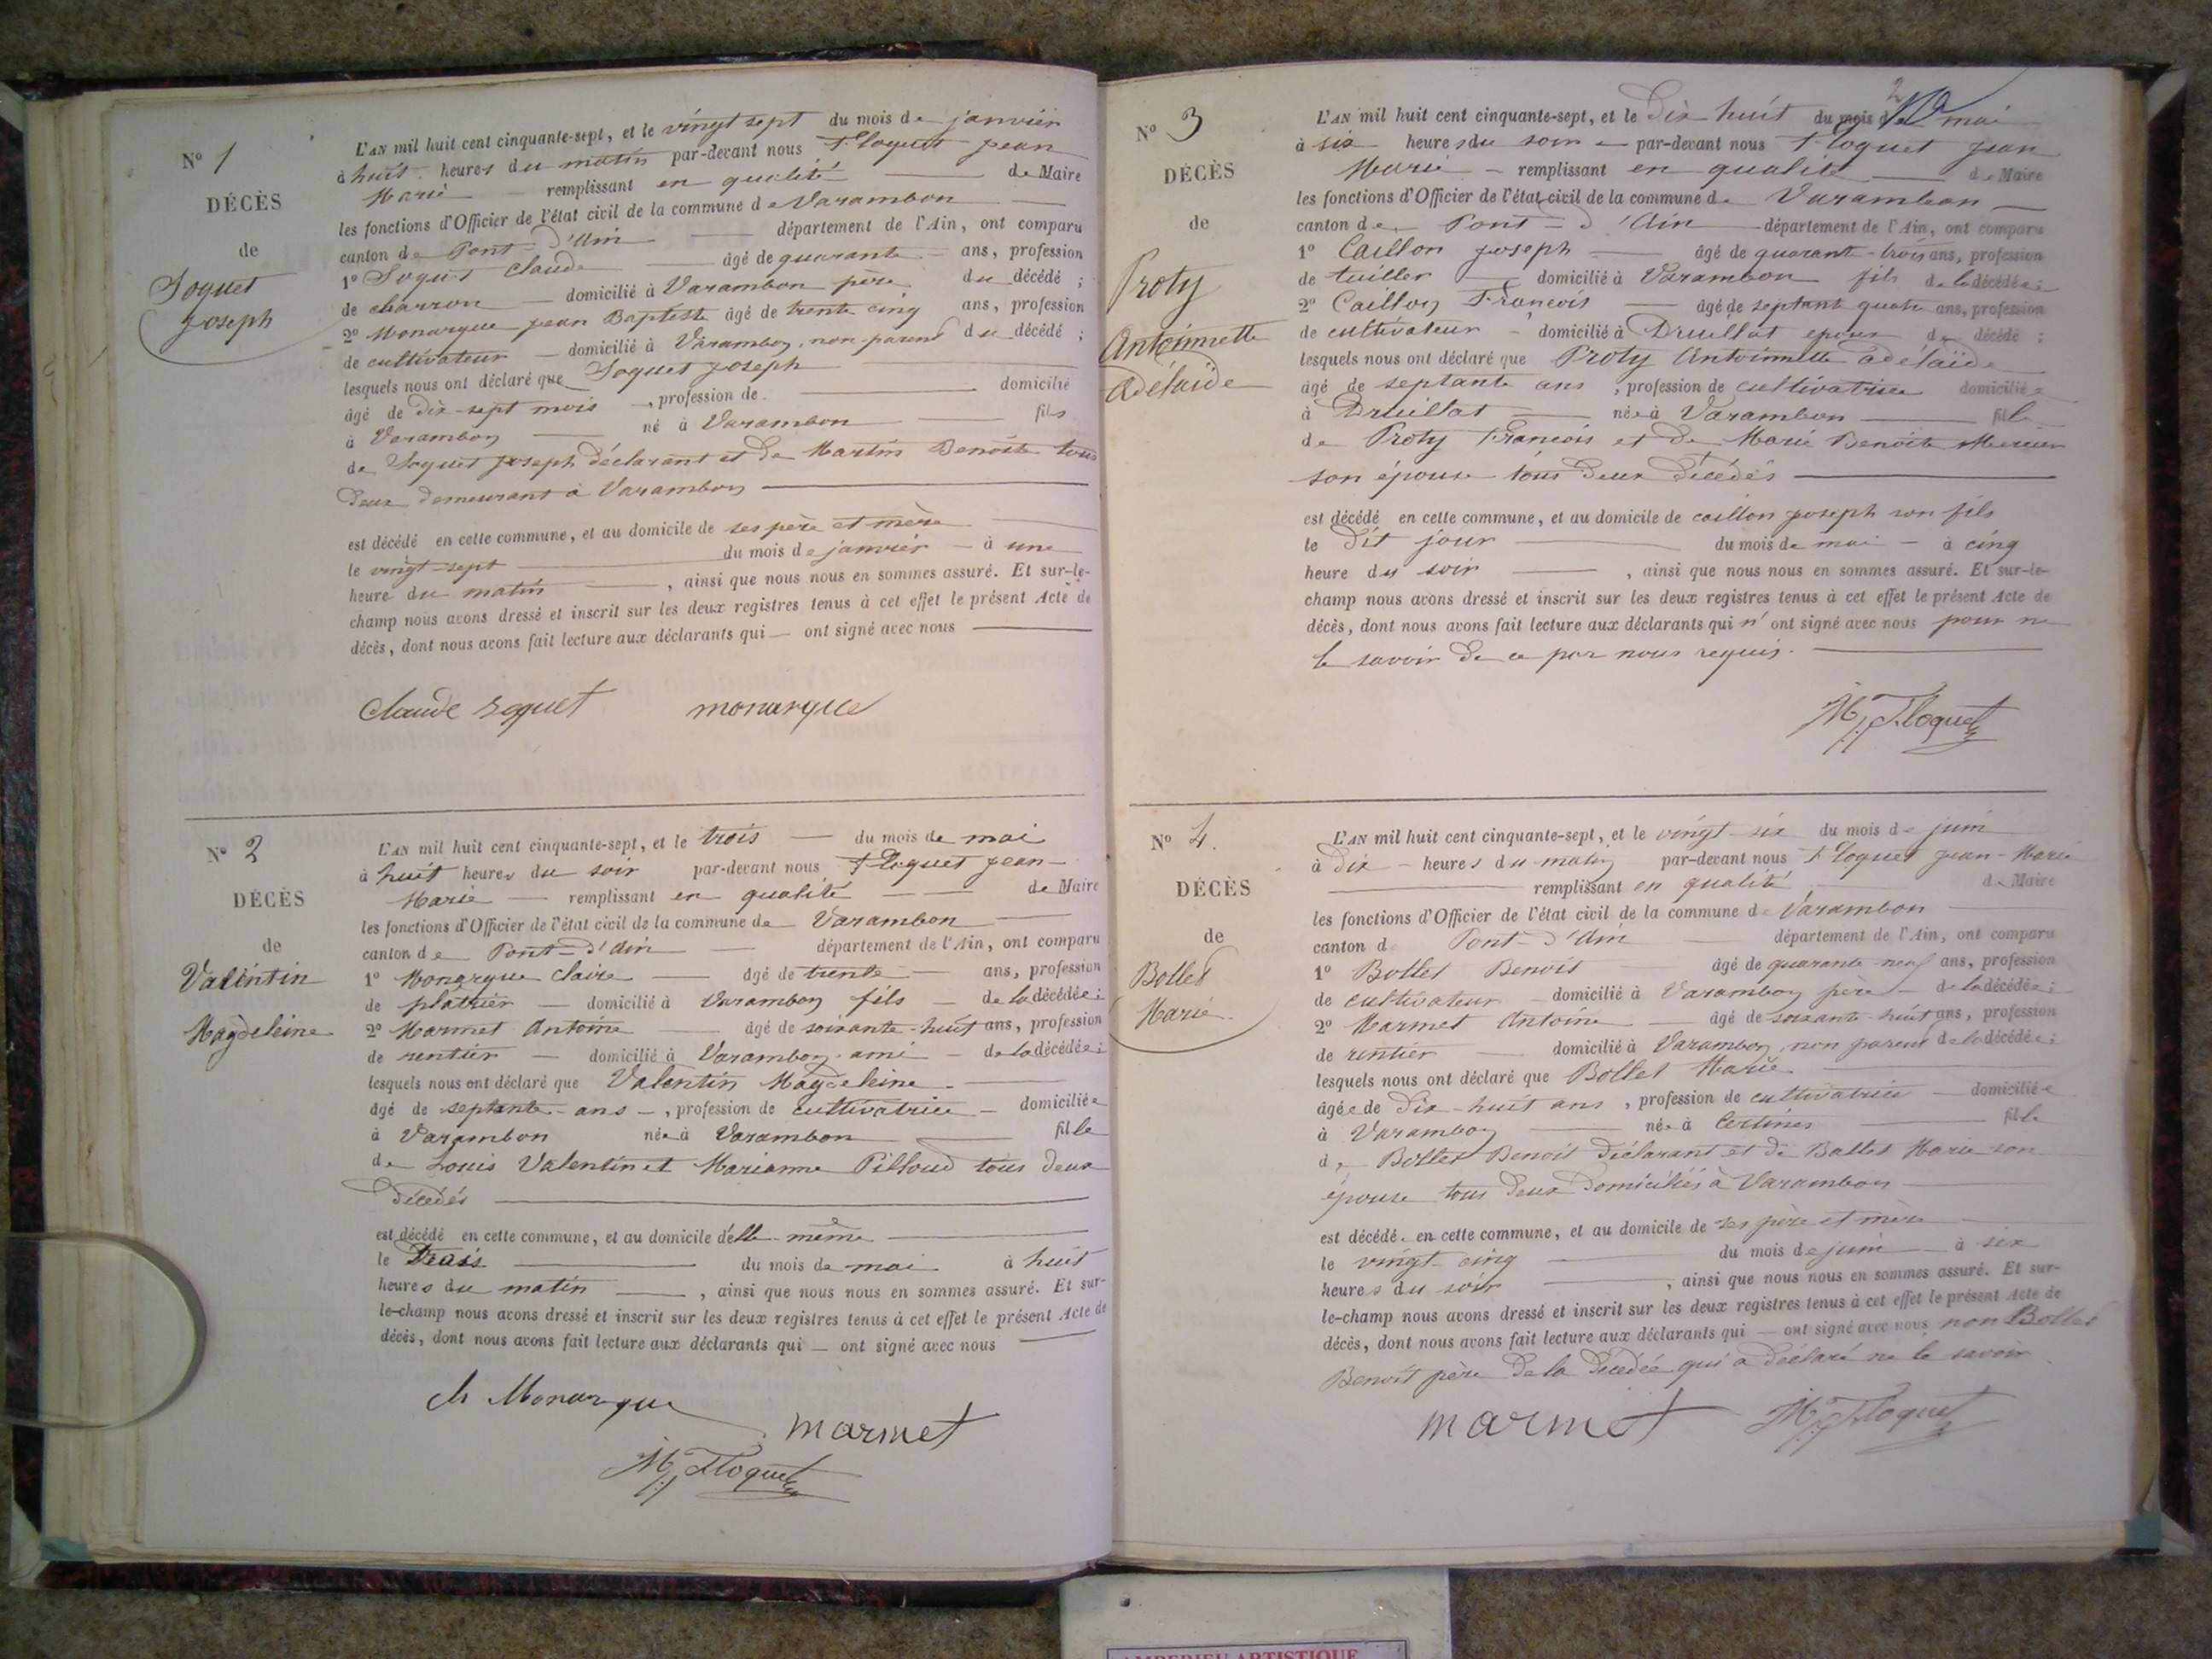 Nº 1
DÉCÈS
de
Soquet
Joseph
L'AN mil huit cent cinquante-sept, et le vingt sept du mois de janvier
à huit heures du matin par-devant nous Floquet jean
Marie — remplissant en qualité — de Maire
les fonctions d'Officier de l'état civil de la commune de Varambon —
canton de Pont-d'Ain — département de l'Ain, ont comparu
1º Soquet Claude — âgé de quarante — ans, profession
de charron — domicilié à Varambon père du décédé ;
2º Monarque jean Baptiste âgé de trente cinq ans, profession
de cultivateur — domicilié à Varambon, non parent du décédé ;
lesquels nous ont déclaré que Soquet joseph
âgé de dix-sept mois —, profession de — domicilié
à Varambon — né à Varambon — fils
de Soquet joseph déclarant et de Martin Benoite tous
deux demeurant à Varambon —
est décédé en cette commune, et au domicile de ses père et mère
le vingt-sept — du mois de janvier — à une
heure du matin —, ainsi que nous nous en sommes assuré. Et sur-le-
champ nous avons dressé et inscrit sur les deux registres tenus à cet effet le présent Acte de
décès, dont nous avons fait lecture aux déclarants qui — ont signé avec nous —
Claude Soquet monarque
Nº 2
DÉCÈS
de
Valentin
Magdeleine
L'AN mil huit cent cinquante-sept, et le trois — du mois de mai
à huit heures du soir par-devant nous Floquet jean-
Marie — remplissant en qualité — de Maire
les fonctions d'Officier de l'état civil de la commune de Varambon —
canton de Pont-d'Ain — département de l'Ain, ont comparu
1º Monarque Claire — âgé de trente — ans, profession
de plâtrier — domicilié à Varambon fils — de la décédée ;
2º Marmet Antoine — âgé de soixante-huit ans, profession
de rentier — domicilié à Varambon ami — de la décédée ;
lesquels nous ont déclaré que Valentin Magdeleine —
âgé de septante-ans —, profession de cultivatrice — domiciliée
à Varambon née à Varambon — fille
de Louis Valentin et Marianne Pilloud tous deux
décédés —
est décédé en cette commune, et au domicile d'elle-même —
le Trois — du mois de mai à huit
heures du matin —, ainsi que nous nous en sommes assuré. Et sur-
le-champ nous avons dressé et inscrit sur les deux registres tenus à cet effet le présent Acte de
décès, dont nous avons fait lecture aux déclarants qui — ont signé avec nous —
Monarque marmet
Floquet
Nº 3
DÉCÈS
de
Proty
Antoinette
Adélaïde
L'AN mil huit cent cinquante-sept, et le Dix huit du mois de mai
à six heures du soir — par-devant nous Floquet jean
Marie — remplissant en qualité — de Maire
les fonctions d'Officier de l'état civil de la commune de Varambon —
canton de Pont-d'Ain — département de l'Ain, ont comparu
1º Caillon joseph — âgé de quarant-trois ans, profession
de tuillier — domicilié à Varambon fils de la décédée ;
2º Caillon François — âgé de septant quatre ans, profession
de cultivateur — domicilié à Druillat époux de décédé ;
lesquels nous ont déclaré que Proty Antoinette adélaïde
âgé de septante ans, profession de cultivatrice domiciliée
à Druillat — née à Varambon — fille
de Proty François et de Marie Benoite Mercier
son épouse tous deux décédés —
est décédé en cette commune, et au domicile de caillon joseph son fils
le dit jour — du mois de mai — à cinq
heure du soir —, ainsi que nous nous en sommes assuré. Et sur-le-
champ nous avons dressé et inscrit sur les deux registres tenus à cet effet le présent Acte de
décès, dont nous avons fait lecture aux déclarants qui n'ont signé avec nous pour ne
le savoir de ce par nous requis. —
Floquet
Nº 4.
DÉCÈS
de
Bollet
Marie
L'AN mil huit cent cinquante-sept, et le vingt-six du mois de juin
à dix — heures du matin par-devant nous Floquet jean-Marie
— remplissant en qualité — de Maire
les fonctions d'Officier de l'état civil de la commune de Varambon —
canton d Pont-d'Ain — département de l'Ain, ont comparu
1º Bollet Benoit âgé de quarante-neuf ans, profession
de cultivateur — domicilié à Varambon père — de la décédée ;
2º Marmet Antoine — âgé de soixante-huit ans, profession
de rentier — domicilié à Varambon, non parent de la décédée ;
lesquels nous ont déclaré que Bollet Marie —
âgée de dix-huit ans, profession de cultivatrice — domiciliée
à Varambon — née à Certines — fille
de Bollet Benoit déclarant et de Ballet Marie son
épouse tous deux domiciliés à Varambon —
est décédé en cette commune, et au domicile de ses père et mère
le vingt-cinq — du mois de juin — à six
heures du soir —, ainsi que nous nous en sommes assuré. Et sur-
le-champ nous avons dressé et inscrit sur les deux registres tenus à cet effet le présent Acte de
décès, dont nous avons fait lecture aux déclarants qui — ont signé avec nous non Bollet
Benoit père de la décédée qui a déclaré ne le savoir
marmet Floquet
AMBERIEU ARTISTIQUE